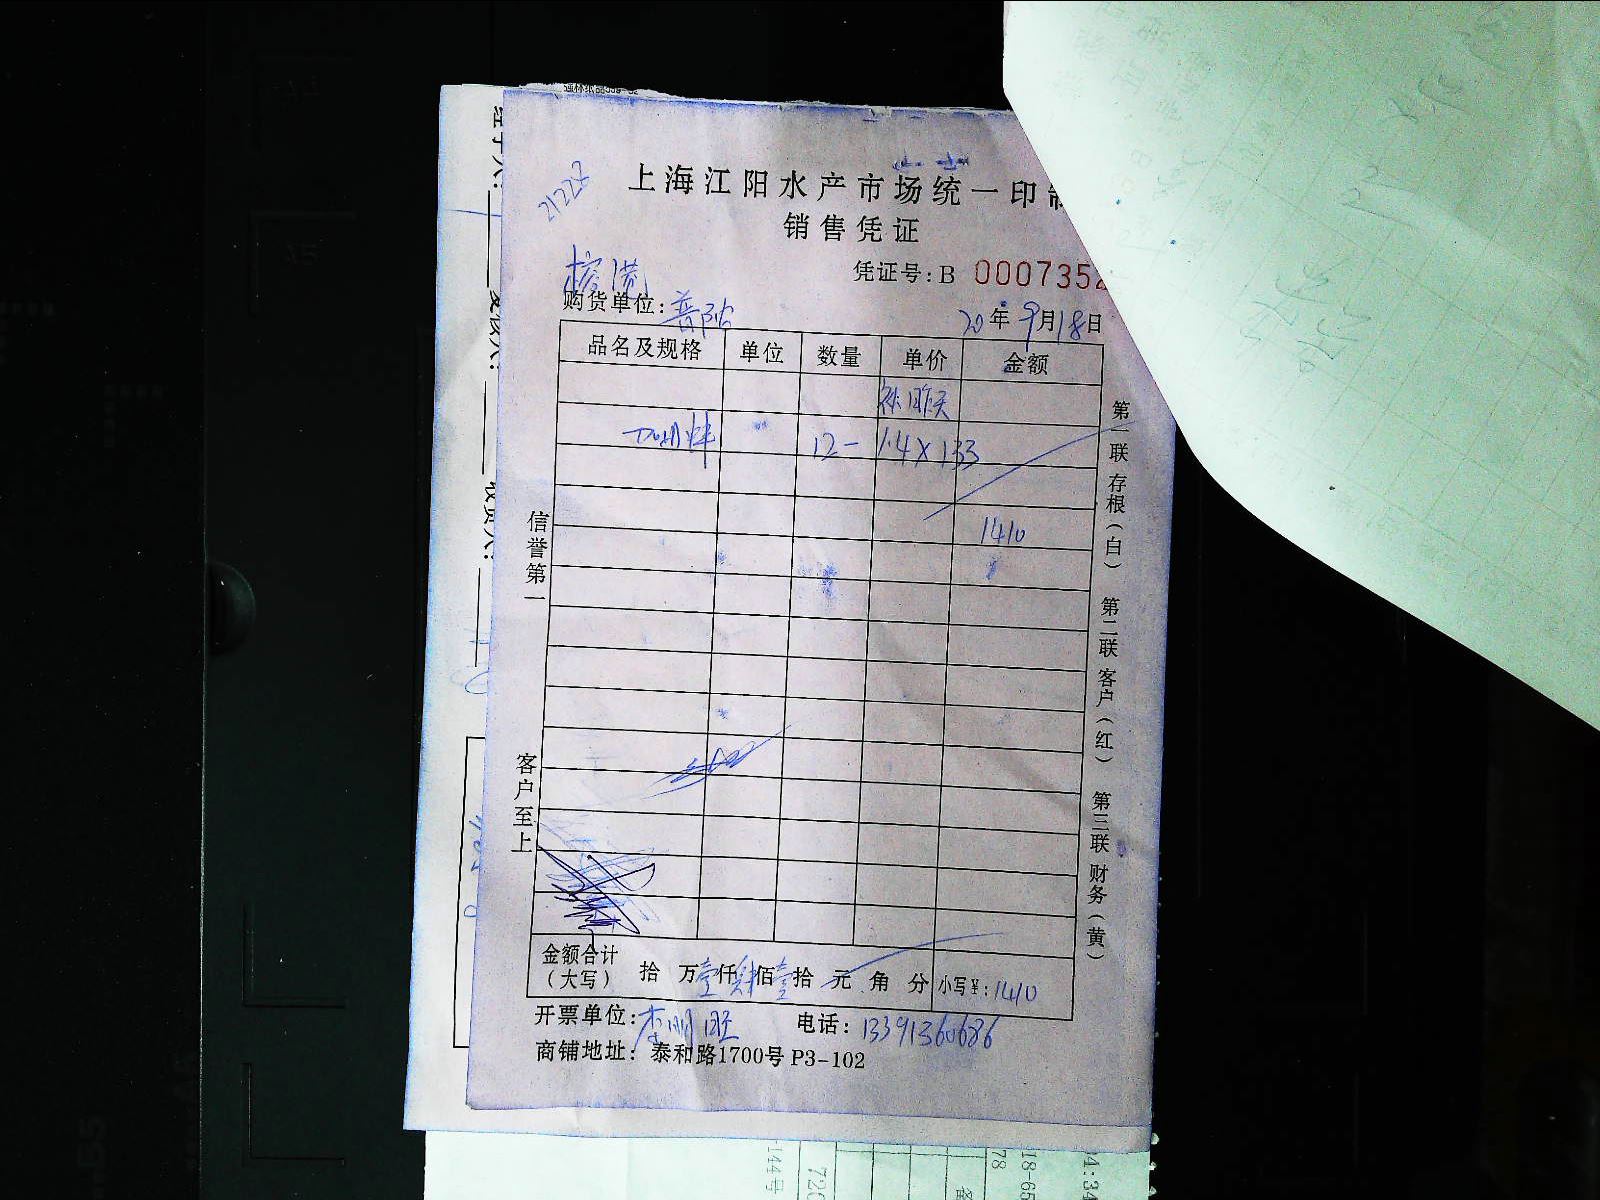 上海江阳水产市场统一印
销售凭证
凭证号:B 000735
购货单位:普陀
20年9月18日
品名及规格 单位 数量 单价 金额
补昨天
12- 1.4×133
1410
信誉第一
客户至上
第一联存根(白) 第二联客户(红) 第三联财务(黄)
金额合计(大写) 拾 万壹仟肆佰壹拾 元 角 分 小写¥:1410
开票单位:李明旺 电话:13391360686
商铺地址:泰和路1700号 P3-102